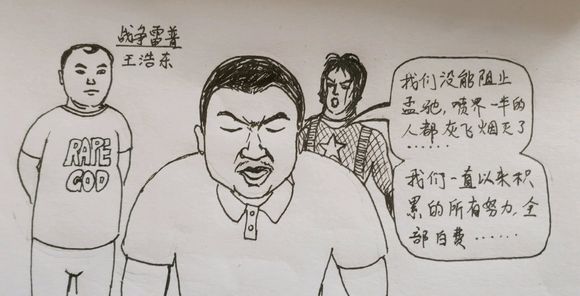 战争雷普
王浩东
RAPE
GOD
我们没能阻止
孟驰,喷界一半的
人都灰飞烟灭了
……
我们一直以来积
累的所有努力,全
部白费……